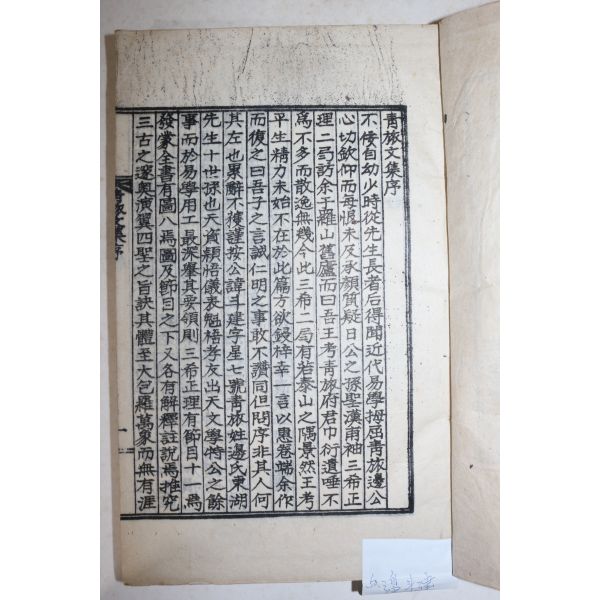 靑旅文集序
不佞自幼少時從先生長者后得聞近代易學拇屈靑旅邊公
心切欽仰而每恨未及承顔質疑日公之孫聖漢甫袖三希正
理二弓訪余于羅山舊廬而曰吾王考靑旅府君巾衍遺唾不
爲不多而散逸無幾今此三希二局有若泰山之隅景然王考
平生精力未始不在於此篇方欲鋟梓幸一言以惠卷端余作
而復之曰吾子之言誠仁明之事敢不讚同但問序非其人何
其左也累辭不獲謹按公諱斗建字星七號靑旅姓邊氏東湖
先生十世孫也天資穎悟儀表魁梧孝友出天文學特公之餘
事而於易學用工最深擧其要領則三希正理有節目十一焉
發蒙全書有圖八焉圖及節目之下又各有解釋註說焉推究
三古之邃奧演翼四聖之旨訣其體至大包羅萬象而無有涯
靑旅文集序
一